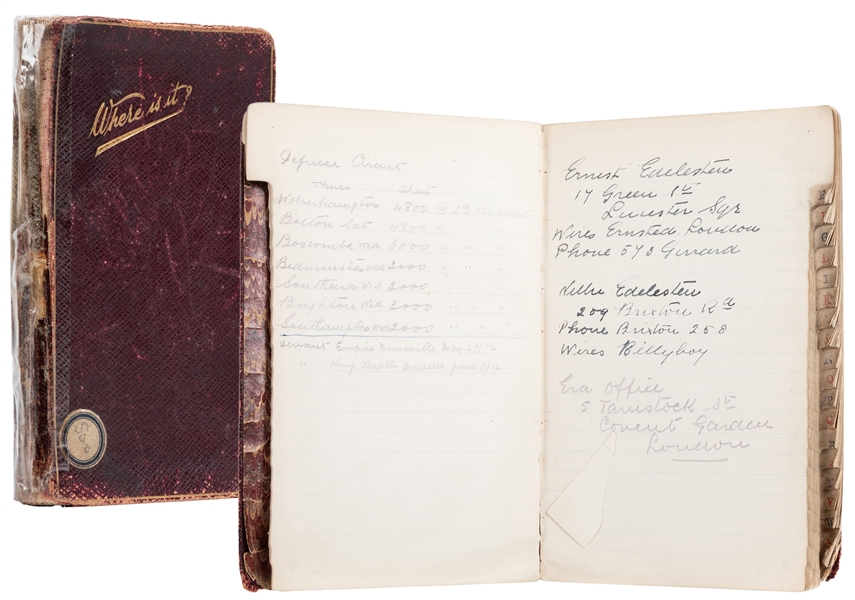 Where is it?
Defrece Circuit
Thurs Sheet
Wolverhampton 4800 @ 25 Per Sheet
Bolton Sat 4800 " " "
Boscombe Wed 3000 " " "
Bedminster Wed 2000 " " "
Southend Wed 3000 " " "
Brighton Wed 2000 " " "
Southampton Wed 2000 " " "
Servant Empire Newcastle May 27/12
" King Theatre Dundee June 3/12
Ernest Edelesten
17 Green St
Leicester Sqr
Wires Ernsted London
Phone 573 Gerrard
Willie Edelesten
209 Brixton Rd
Phone Brixton 258
Wires Billyboy
Era Office
5 Tavistock St
Covent Garden
London